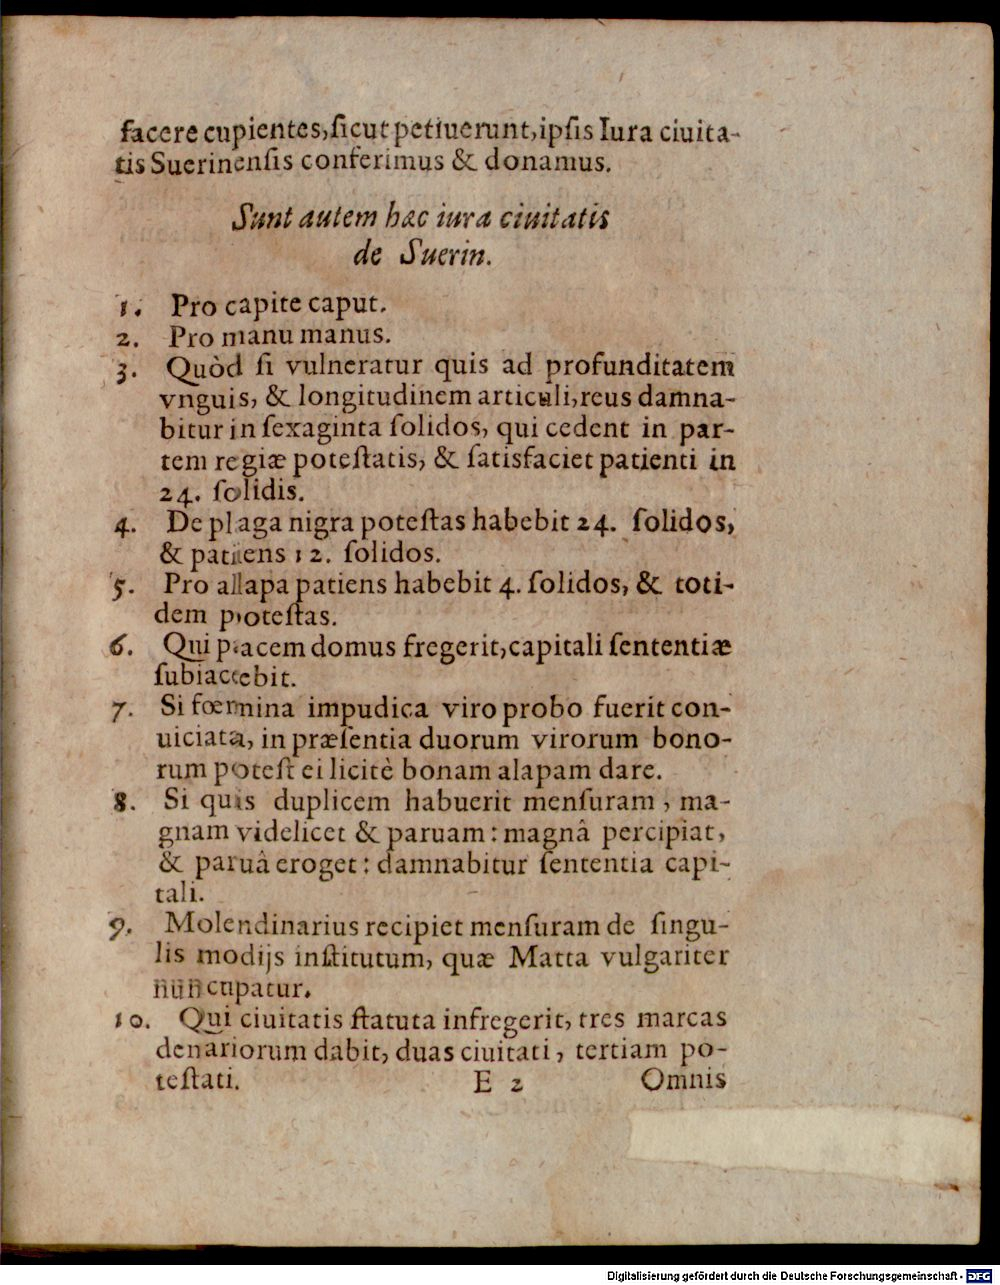 facere cupientes, ſicut petiuerunt, ipſis Iura ciuita-
tis Suerinenſis conferimus & donamus.
Sunt autem hæc iura ciuitatis
de Suerin.
1. Pro capite caput.
2. Pro manu manus.
3. Quòd ſi vulneratur quis ad profunditatem
vnguis, & longitudinem articuli, reus damna-
bitur in ſexaginta ſolidos, qui cedent in par-
tem regiæ poteſtatis, & ſatisfaciet patienti in
24. ſolidis.
4. De plaga nigra poteſtas habebit 24. ſolidos,
& patiens 12. ſolidos.
5. Pro alapa patiens habebit 4. ſolidos, & toti-
dem poteſtas.
6. Qui pacem domus fregerit, capitali ſententiæ
ſubiacebit.
7. Si fœmina impudica viro probo fuerit con-
uiciata, in præſentia duorum virorum bono-
rum poteſt ei licitè bonam alapam dare.
8. Si quis duplicem habuerit menſuram, ma-
gnam videlicet & paruam: magnâ percipiat,
& paruâ eroget: damnabitur ſententia capi-
tali.
9. Molendinarius recipiet menſuram de ſingu-
lis modijs inſtitutum, quæ Matta vulgariter
nuncupatur.
10. Qui ciuitatis ſtatuta infregerit, tres marcas
denariorum dabit, duas ciuitati, tertiam po-
teſtati. E 2 Omnis
Digitalisierung gefördert durch die Deutsche Forschungsgemeinschaft - DFG